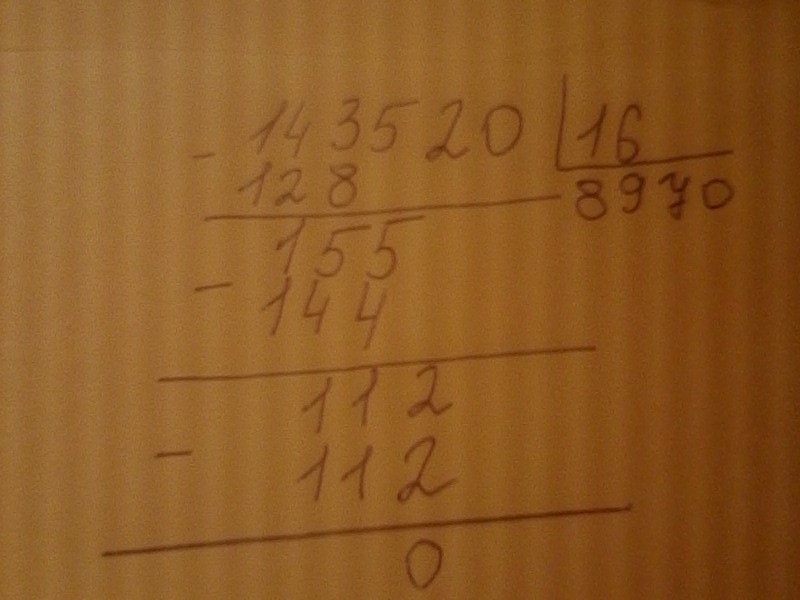 - 143520 | 16
128 8970
155
- 144
112
- 112
0